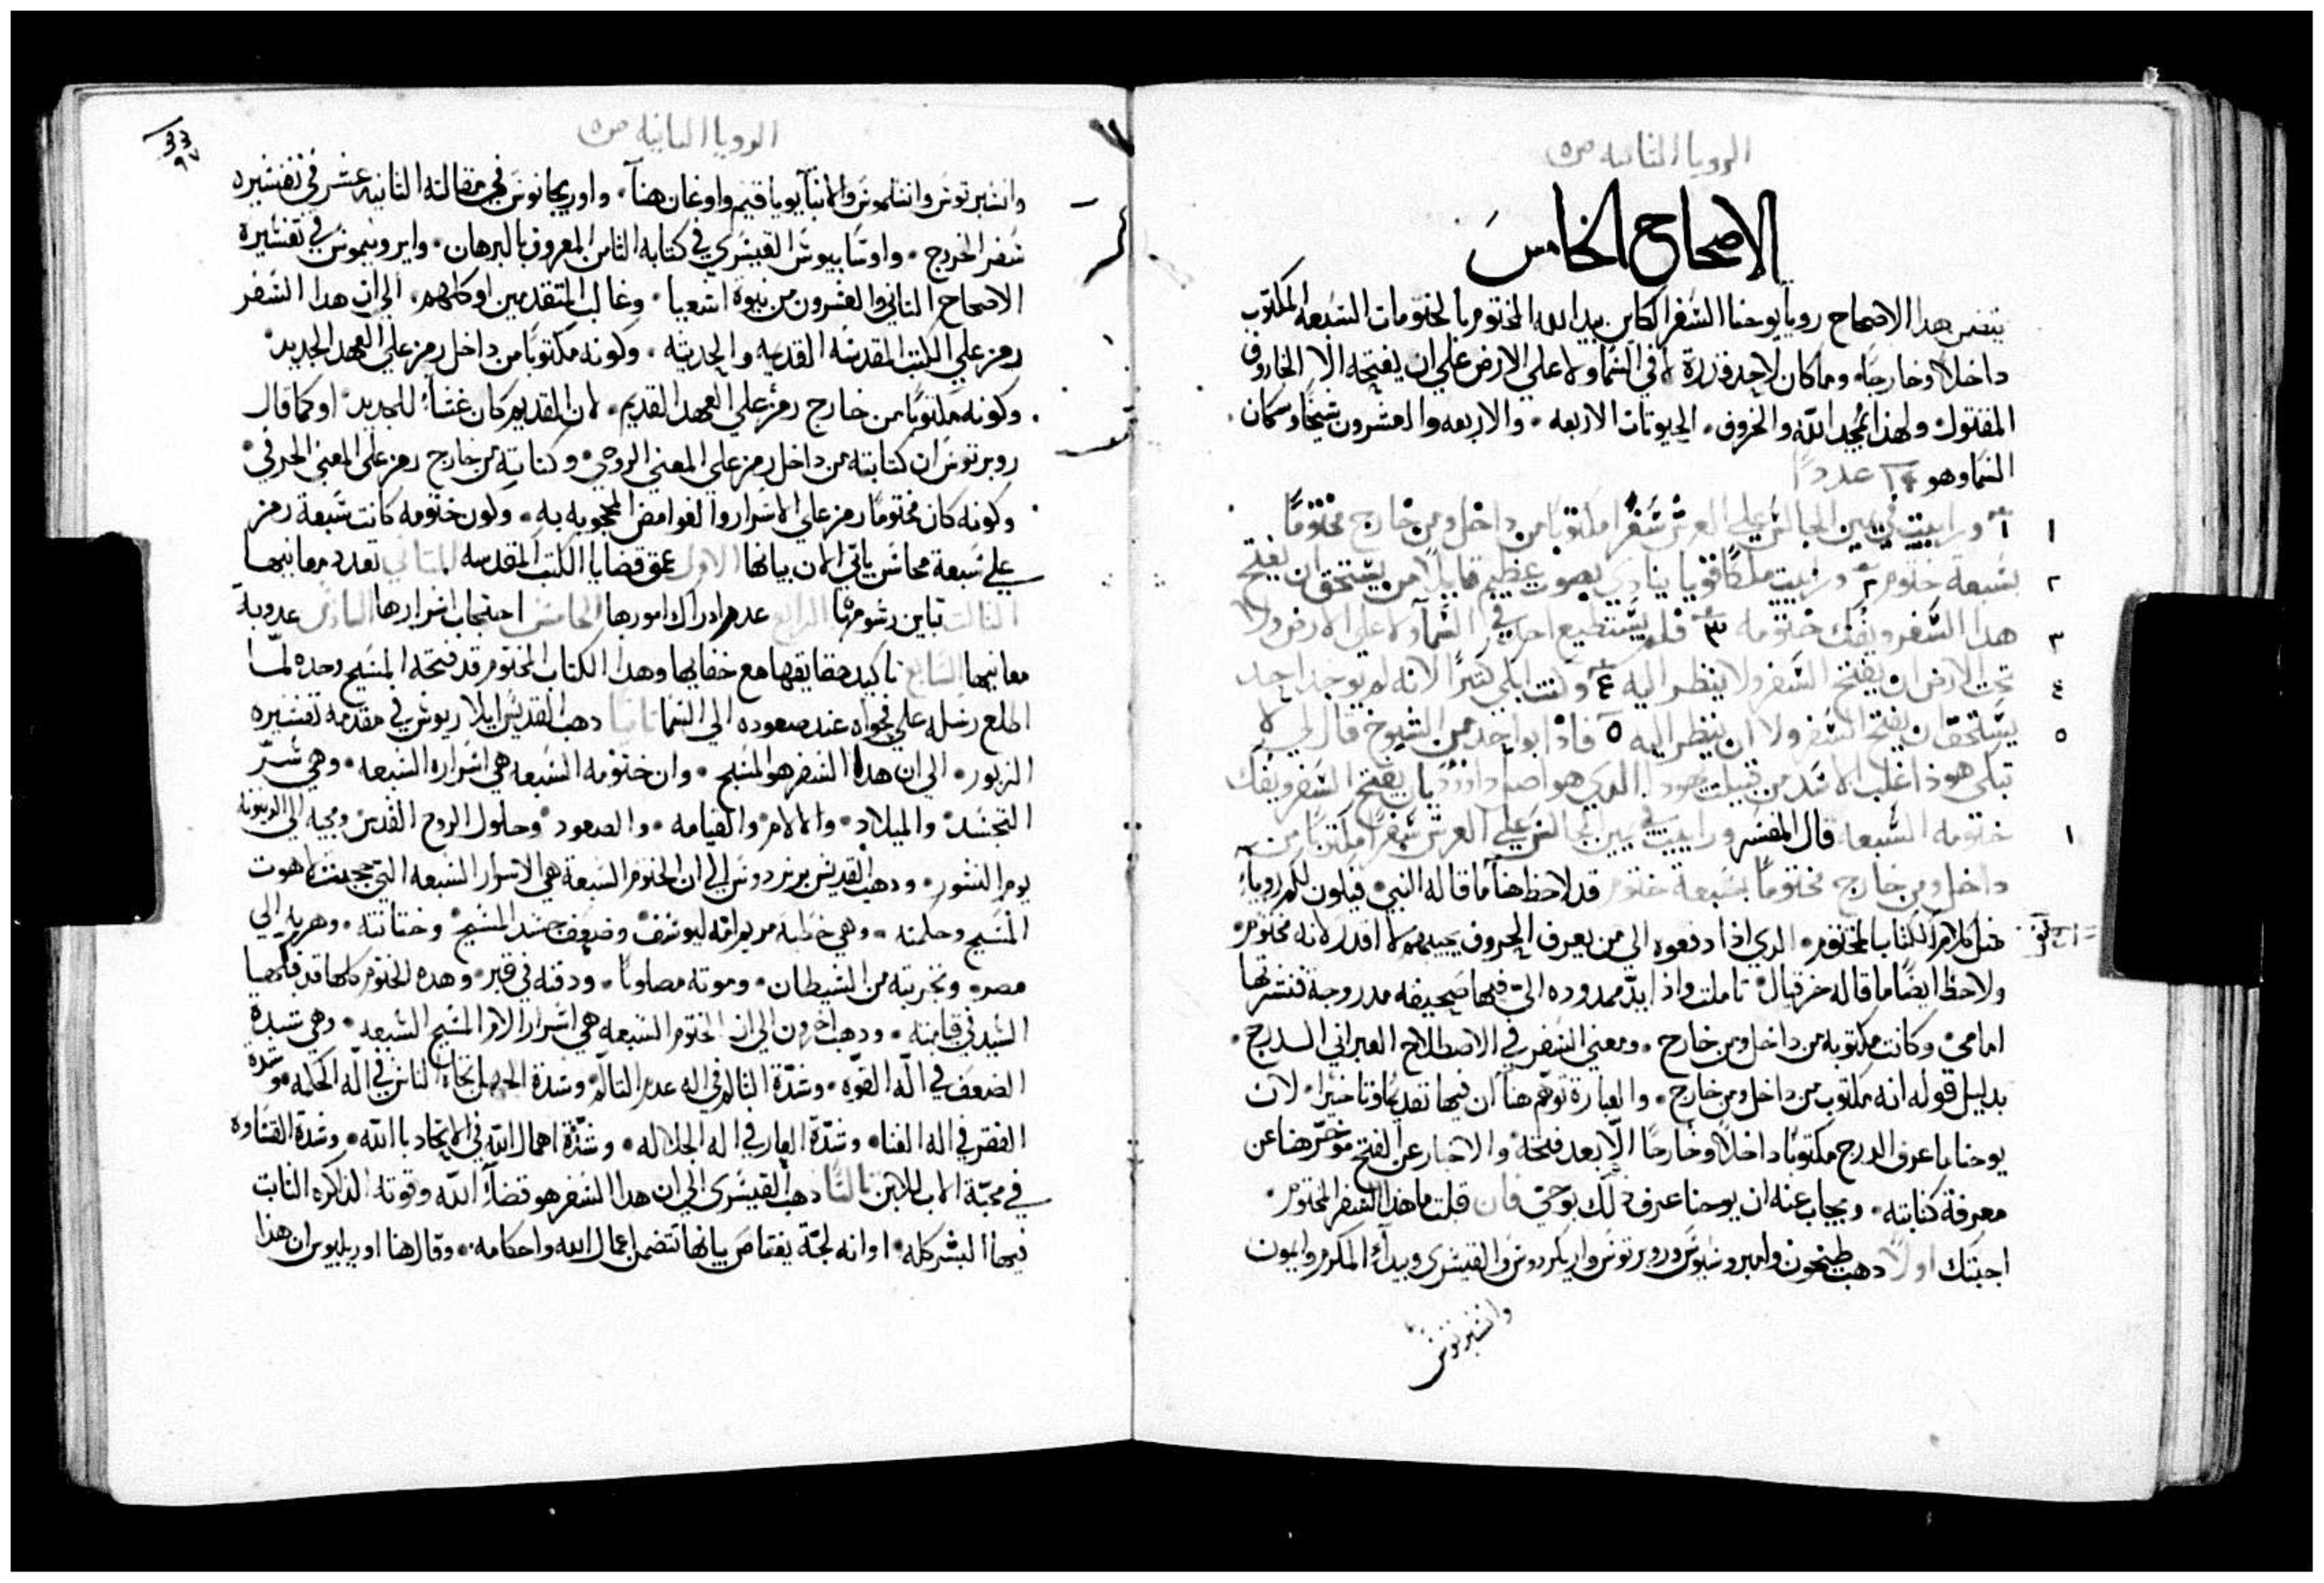 الرويا الثانيه ص٥
الاصحاح الخامس
يتضمن هدا الاصحاح رويا يوحنا السفر الكاين بيد الله المختوم بالختومات السبعه المكتوب
داخلاً وخارجًا. وما كان لاحد قدرة لا في السما ولا علي الارض علي ان يفتحه الا الخاروف
المقتول ولهذا يمجد الله والخروف. الحيونات الاربعه. والاربعه والعشرون شيخًا وسكان
السما وهو ١٤ عددًا
١ ورايت في يمين الجالس علي العرش سفرًا مكتوبًا من داخل ومن خارج مختومًا
بسبعة ختوم ٢ ورايت ملاكًا قويا ينادي بصوت عظيم قايلاً من يستحق ان يفتح
هدا السفر ويفك ختومه ٣ فلم يستطيع احد في السمآ ولا علي الارض ولا
تحت الارض ان يفتح السفر ولا ينظر اليه ٤ وكنت ابكي كثيرًا لانه لم يوجد احد
يستحق ان يفتح السفر ولا ان ينظر اليه ٥ فاذا بواحد من الشيوخ قال لي لا
تبكي هوذا غلب الاسد من قبيلة يهودا الدي هو اصل داوود بان يفتح السفر ويفك
ختومه السبعه قال المفسر ورايت في يمين الجالس علي العرش سفرًا مكتوبًا من
داخل ومن خارج مختومًا بسبعة ختوم قد لاحظ هنا ما قاله النبي. فيكون لكم روياء
مثل كلام الكتاب المختوم. الدي اذا دفعوه الي من يعرف الحروف يجيبهم لا اقدر لانه مختوم.
ولاحظ ايضًا ما قاله حزقيال تاملت واذا يدّ ممدوده اليّ فيها صحيفه مدروجة فنشرتها
امامي وكانت مكتوبه من داخل ومن خارج. ومعني السفر في الاصطلاح العبراني الدرج.
بدليل قوله انه مكتوب من داخل ومن خارج. والعبارة توهم هنا ان فيها تقديمًا وتاخيرًا. لان
يوحنا ما عرف الدرج مكتوبًا داخلاً وخارجًا الّا بعد فتحه والاخبار عن الفتح موخرّ هنا عن
معرفة كتابته. ويجاب عنه ان يوحنا عرف دلك بوحي فان قلت ما هدا السفر المختوم.
اجبتك اولاً دهب طيخون وامبروسيوس وروبرتوس واريكردوس والقيسري وبيدا المكرم وابيون
وانسبرتوس
الرويا الثانيه ص٥
وانسبرتوس وانسلموس والانبآ يوياقيم واوغان هنآ. واوريجانوس في مقالته الثانيه عشر في تفسيره
سفر الخروج. واوسابيوس القيسري في كتابه الثامن المعروف بالبرهان. وايرونيموس في تفسيره
الاصحاح التاني والعشرون من نبوة اشعيا. وغالب المتقدمين اوكلهم. الي ان هدا السفر
رمز علي الكتب المقدسه القديمه والحديثه. وكونه مكتوبًا من داخل رمز علي العهد الجديد.
وكونه مكتوبًا من خارج رمز علي العهد القديم. لان القديم كان غشآ للجديد. او كما قال
روبرتوس ان كتابته من داخل رمز علي المعني الروحي. وكتابته من خارج رمز علي المعني الحرفي.
وكونه كان مختومًا رمز علي الاسرار والغوامض المحجوبه به. وكون ختومه كانت سبعة رمز
علي سبعة محاسن ياتي الان بيانها الاول عمق قضايا الكتب المقدسه التاني تعدد معانيها
التالت تباين رسومها الرابع عدم ادراك امورها الخامس احتجاب اسرارها السادس عدوبة
معانيها السابع تاكيد حقايقها مع خفايها وهدا الكتاب المختوم قد فتحه المسيح وحده لمّا
اطلع رسله علي فحواه عند صعوده الي السما تانيًا دهب القديس ايلاريوس في مقدمة تفسيره
الزبور. الي ان هدا السفر هو المسيح. وان ختومه السبعه هي اسراره السبعه. وهي سرّ
التجسد والميلاد. والالام والقيامه. والصعود وحلول الروح القدس ومجيه الي الدينونه
يوم النشور. ودهب القديس برنردوس الي ان الختوم السبعة هي الاسرار السبعه التي حجبت لاهوت
المسيح وحكمته. وهي خطبة مريم امه ليوسف وضعف جسد المسيح وختانته. وهربه الي
مصر. وتجربته من الشيطان. وموته مصلوبًا. ودفنه في قبر. وهده الختوم كلها قد فتحها
السيد في قيامته. ودهب اخرون الي ان الختوم السبعه هي اسرار الام المسيح السبعه. وهي شدة
الضعف في اله القوه. وشدّة التالم في اله عدم التالم. وشدة الجهل تجاه الناس في اله الحكمه. وشدة
الفقر في اله الغنا. وشدّة العار في اله الجلاله. وشدّة اهمال الله في الاتحاد با الله. وشدة القساوه
في محبّة الاب للابن تالتًا دهب القيسري الي ان هدا السفر هو قضآء الله وقوته الذاكره الثابت
فيها البشر كله. او انه لجّة يغتاص بيانها تتضمن اعمال الله واحكامه. وقال هنا اوريليوس ان هذا